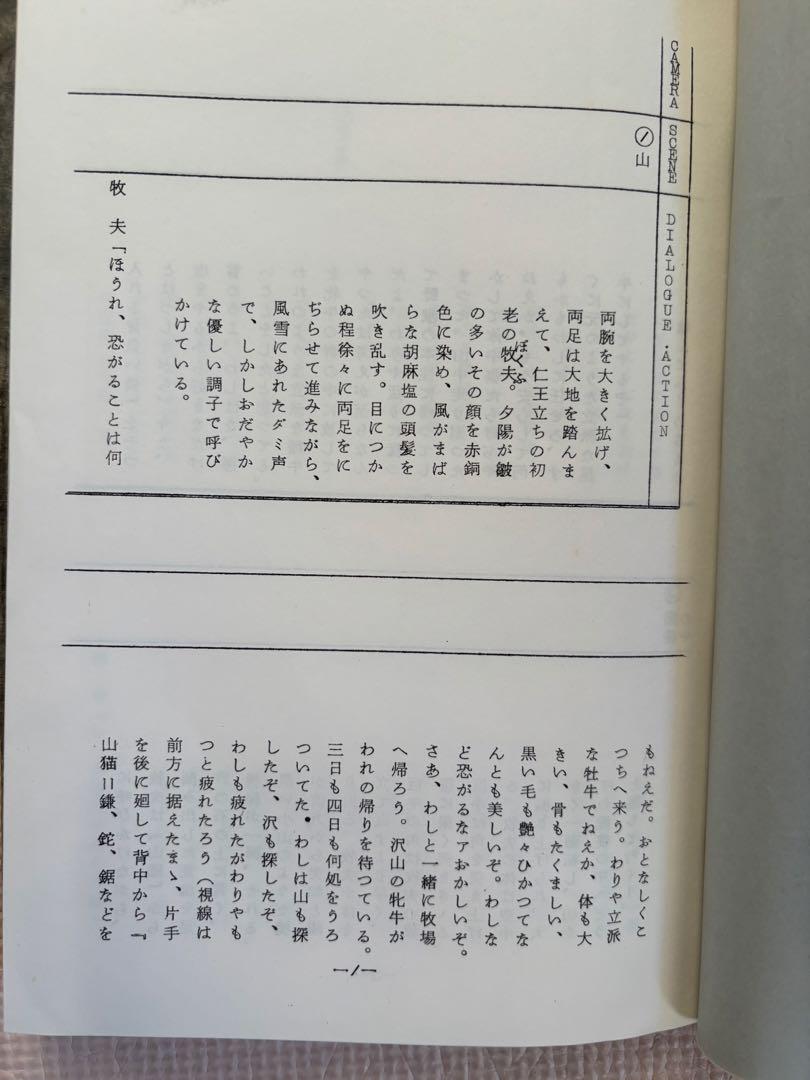 CAMERA
SCENE
DIALOGUE・ACTION
①山
両腕を大きく拡げ、
両足は大地を踏んま
えて、仁王立ちの初
老の牧夫。夕陽が皺
ぼくふ
の多いその顔を赤銅
色に染め、風がまば
らな胡麻塩の頭髪を
吹き乱す。目につか
ぬ程徐々に両足をに
ぢらせて進みながら、
風雪にあれたダミ声
で、しかしおだやか
な優しい調子で呼び
かけている。
牧夫「ほうれ、恐がることは何
もねえだ。おとなしくこ
つちへ来う。わりや立派
な牡牛でねえか、体も大
きい、骨もたくましい、
黒い毛も艶々ひかつてな
んとも美しいぞ。わしな
ど恐がるなァおかしいぞ。
さあ、わしと一緒に牧場
へ帰ろう。沢山の牝牛が
われの帰りを待つている。
三日も四日も何処をうろ
ついてた・わしは山も探
したぞ、沢も探したぞ、
わしも疲れたがわりやも
つと疲れたろう（視線は
前方に据えたまゝ、片手
を後に廻して背中から『
山猫＝鎌、鉈、鋸などを
―1―